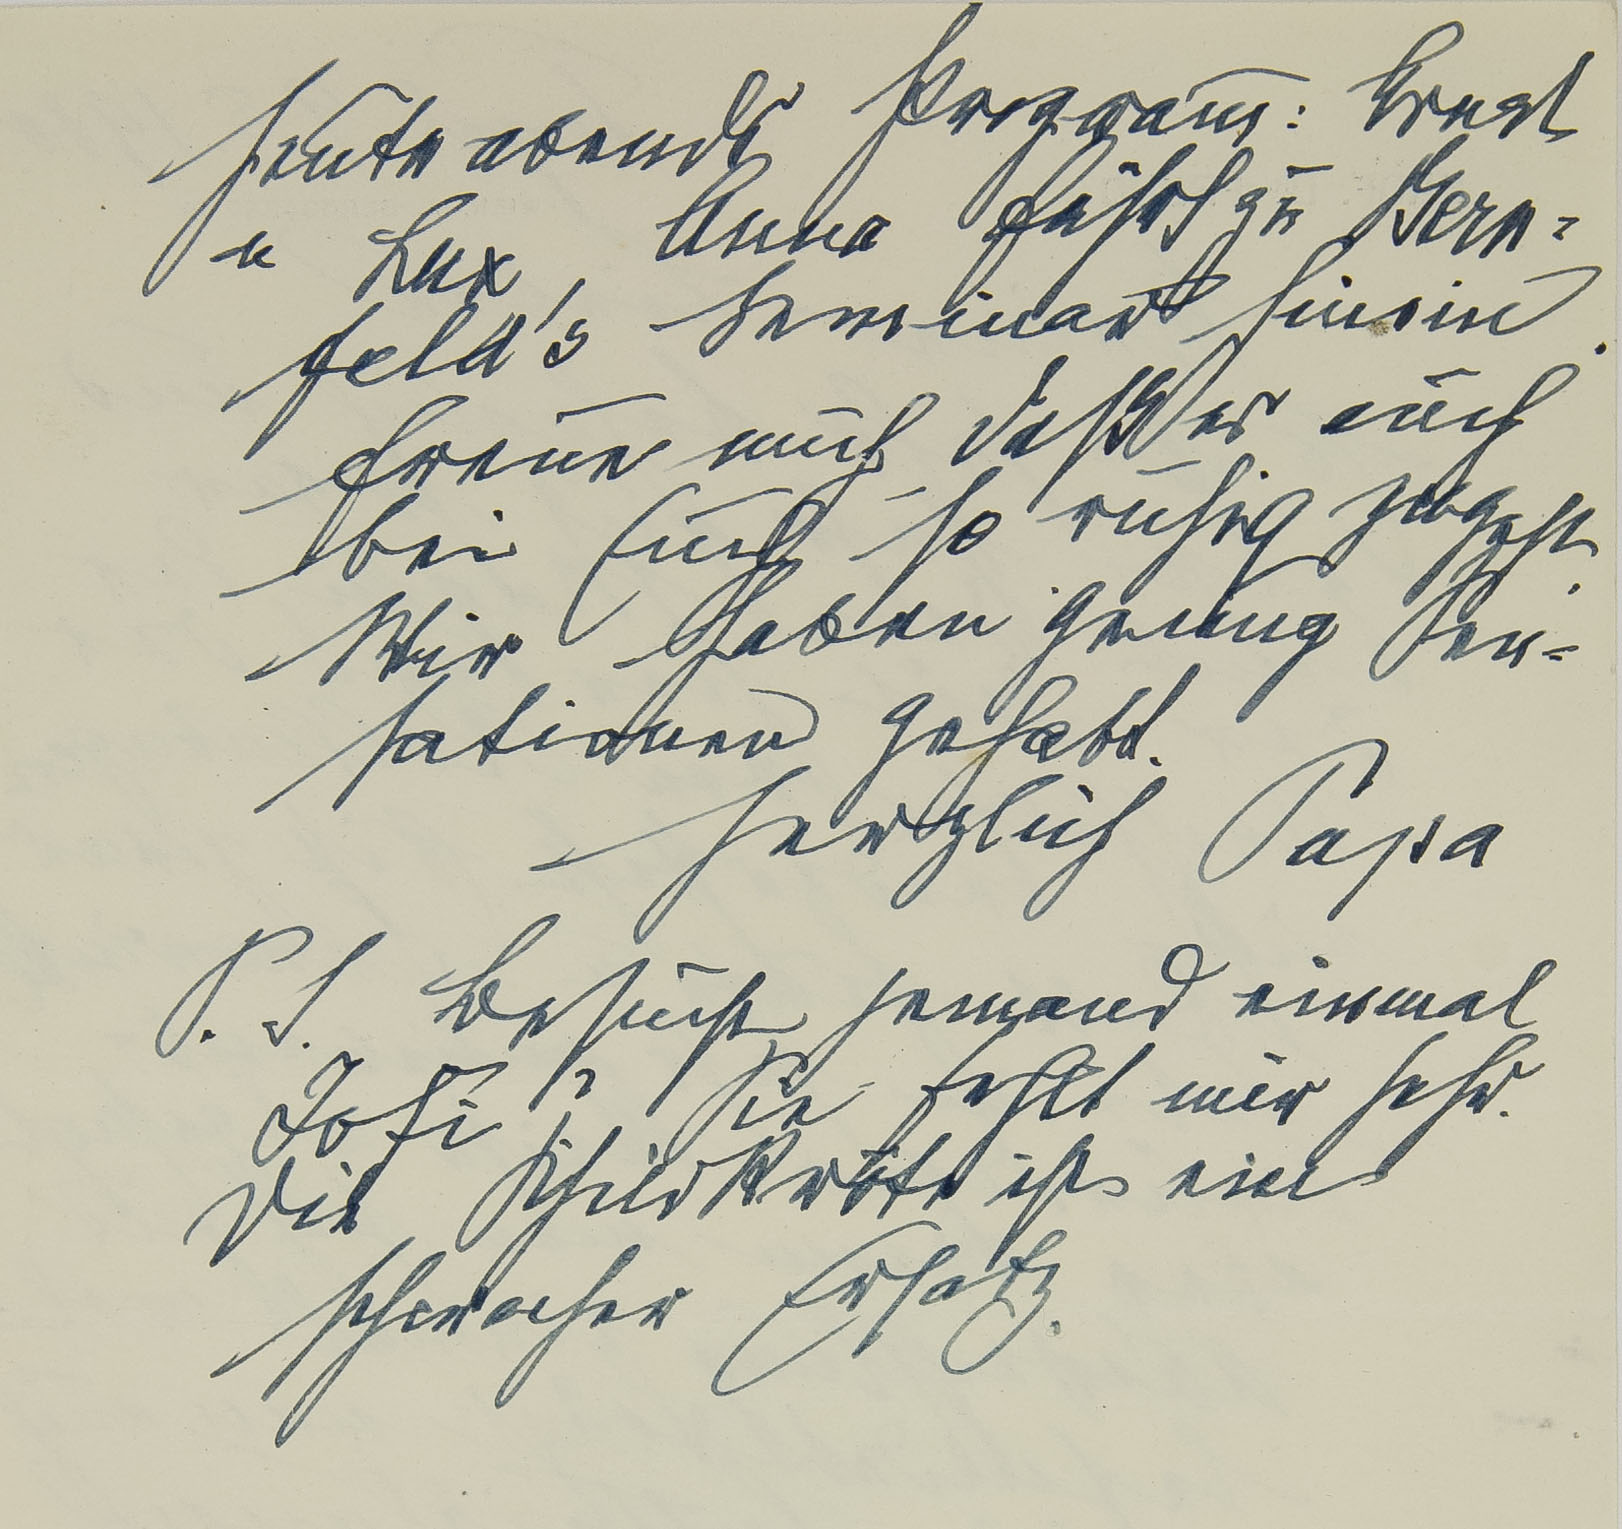 Heute abends Program̅: Ernst
u Lux, Anna fährt zu Bern=
feld's Seminar hinein.
Freue mich daß es auch
bei Euch so ruhig zugeht.
Wir haben genug Sen=
sationen gehabt.
Herzlich Papa
P. S. Besucht jemand einmal
Jofi? Sie fehlt mir sehr.
Die Schildkröte ist ein
schwacher Ersatz.